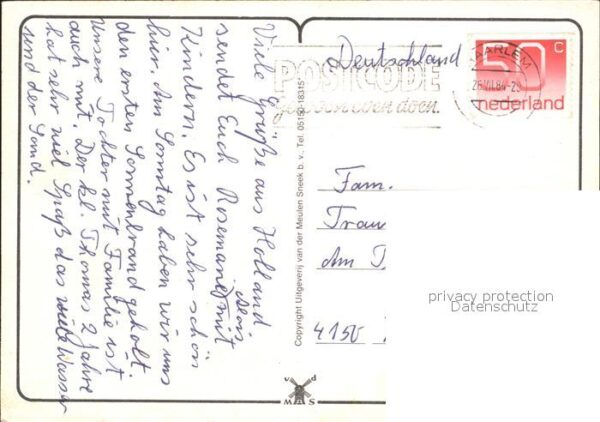 Viele Grüße aus Holland
sendet Euch Rosemarie mit
Alois
Kindern. Es ist sehr schön
hier. Am Sonntag haben wir uns
den ersten Sonnenbrand geholt.
Unsere Tochter mit Familie ist
auch mit. Der kl. Thomas 2 Jahre
hat sehr viel Spaß das viele Wasser
und der Sand.
Copyright Uitgeverij van der Meulen Sneek b. v., Tel. 05150-18315
VMS
Deutschland
POSTCODE
gewoon even doen.
HAARLEM
50 c
nederland
Fam.
Trau
Am
4150
privacy protection
Datenschutz